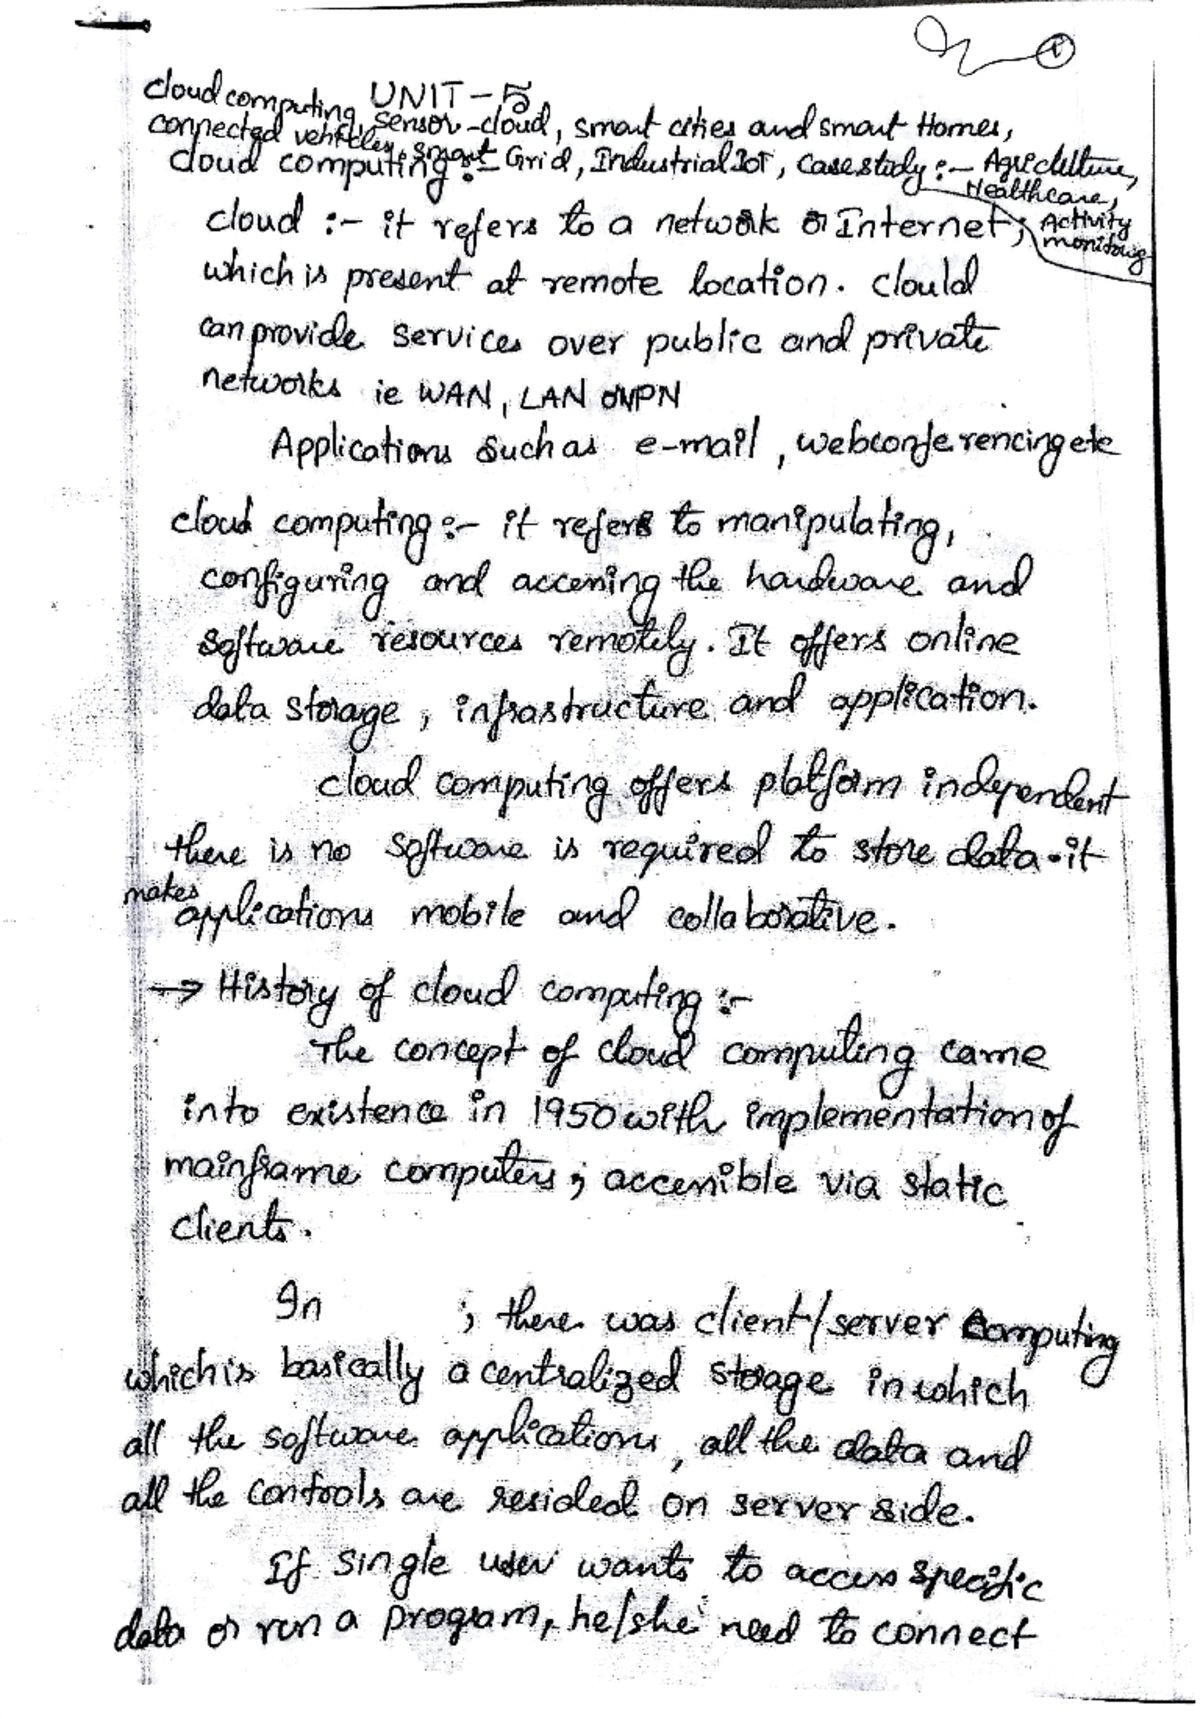 1
UNIT-5
cloud computing, sensor-cloud, smart cities and smart Homes,
connected vehicles, smart Grid, Industrial IoT, case study :- Agriculture,
Healthcare,
Activity
monitoring
cloud computing :-
cloud :- it refers to a network or Internet;
which is present at remote location. clould
can provide services over public and private
networks ie WAN, LAN or VPN
Applications such as e-mail, webconferencing etc
cloud computing :- it refers to manipulating,
configuring and accessing the hardware and
software resources remotely. It offers online
data storage, infrastructure and application.
cloud computing offers platform independent
there is no software is required to store data. it
makes applications mobile and collaborative.
→ History of cloud computing :-
The concept of cloud computing came
into existence in 1950 with implementation of
mainframe computers; accessible via static
clients.
In ; there was client/server Computing
which is basically a centralized storage in which
all the software applications, all the data and
all the controls are resided on server side.
If single user wants to access specific
data or run a program, he/she need to connect